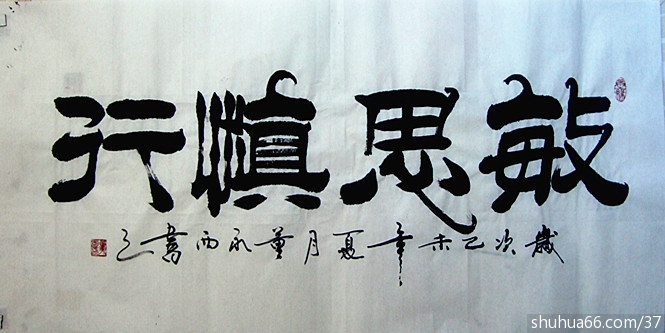 敏思慎行
歲次乙未年夏月董書之
shuhua66.com/37